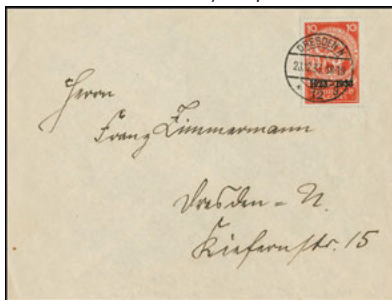 10 10
DRESDEN A
1923-1933
Herrn
Franz Zimmermann
Dresden = N.
Kiefernstr. 15